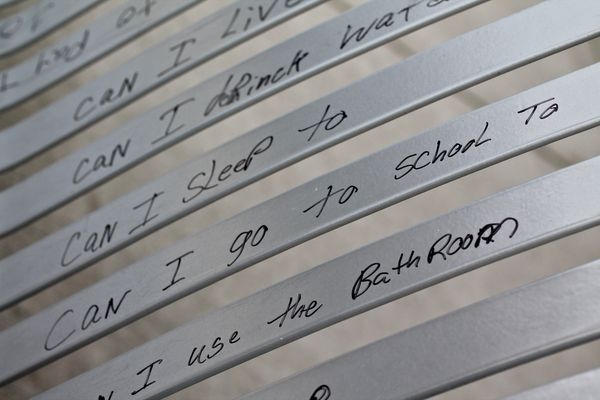 of
I had of
CAN I Live
CAN I dRinck wat
CAN I SLeep to
CAN I go to school To
N I use the BathRoom